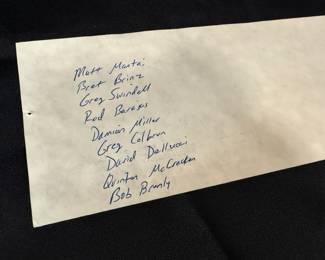 Matt Mantei
Bret Prinz
Greg Swindell
Rod Barajas
Damian Miller
Greg Colbrun
David Dellucci
Quinton McCracken
Bob Brenly